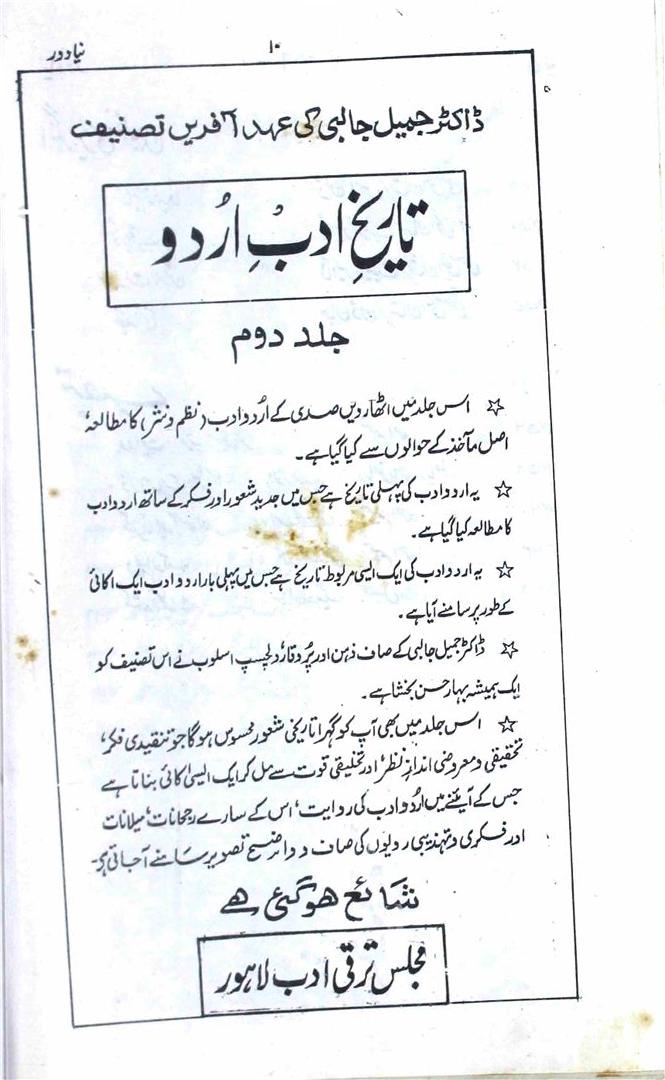 نیا دور
۱۰
ڈاکٹر جمیل جالبی کی عہد آفریں تصنیف
تاریخِ ادبِ اُردو
جلد دوم
☆ اس جلد میں اٹھارویں صدی کے اُردو ادب (نظم و نثر) کا مطالعہ
اصل مآخذ کے حوالوں سے کیا گیا ہے۔
☆ یہ اردو ادب کی پہلی تاریخ ہے جس میں جدید شعور اور فکر کے ساتھ اردو ادب
کا مطالعہ کیا گیا ہے۔
☆ یہ اردو ادب کی ایک ایسی مربوط تاریخ ہے جس میں پہلی بار اردو ادب ایک اکائی
کے طور پر سامنے آیا ہے۔
☆ ڈاکٹر جمیل جالبی کے صاف ذہن اور پُر وقار دلچسپ اسلوب نے اس تصنیف کو
ایک ہمیشہ بہار حسن بخشا ہے۔
☆ اس جلد میں بھی آپ کو گہرا تاریخی شعور محسوس ہوگا جو تنقیدی فکر،
تحقیقی و معروضی اندازِ نظر، اور تخلیقی قوت سے مل کر ایک ایسی اکائی بناتا ہے
جس کے آئینے میں اُردو ادب کی روایت، اس کے سارے رجحانات، میلانات
اور فکری و تہذیبی رویوں کی صاف و واضح تصویر سامنے آجاتی ہے۔
شائع ہوگئی ہے
مجلس ترقی ادب لاہور